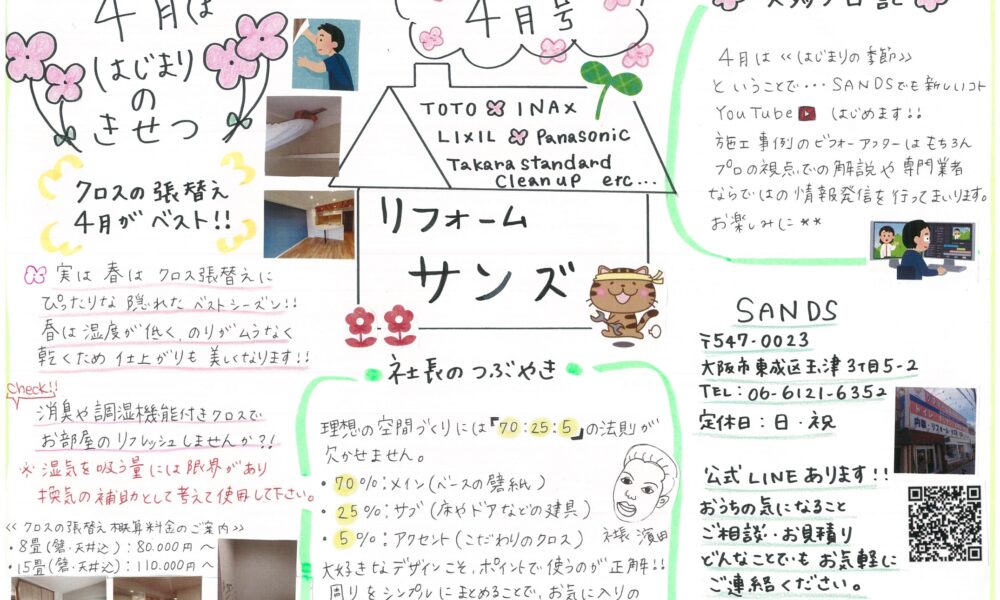 4月は
はじまり
の
きせつ
クロスの張替え
4月がベスト!!
実は春はクロス張替えに
ぴったりな隠れたベストシーズン!!
春は湿度が低く、のりがムラなく
乾くため仕上がりも美しくなります!!
check!!
消臭や調湿機能付きクロスで
お部屋のリフレッシュしませんか?!
※湿気を吸う量には限界があり
換気の補助として考えて使用して下さい。
≪クロスの張替え概算料金のご案内≫
・8畳(壁・天井込):80.000円〜
・15畳(壁・天井込):110.000円〜
4月号
TOTO INAX
LIXIL Panasonic
Takara standard
Clean up etc...
リフォーム
サンズ
社長のつぶやき
理想の空間づくりには『70:25:5』の法則が
欠かせません。
・70%:メイン(ベースの壁紙)
・25%:サブ(床やドアなどの建具)
・5%:アクセント(こだわりのクロス)
社長 濱田
大好きなデザインこそ、ポイントで使うのが正解!!
周りをシンプルにまとめることで、お気に入りの
4月は≪はじまりの季節≫
ということで・・・SANDSでも新しいコト
YouTube はじめます!!
施工事例のビフォーアフターはもちろん
プロの視点での解説や専門業者
ならではの情報発信を行ってまいります。
お楽しみに**
SANDS
〒547-0023
大阪市東成区玉津3丁目5-2
TEL:06-6121-6352
定休日:日・祝
公式LINEあります!!
おうちの気になること
ご相談・お見積り
どんなことでもお気軽に
ご連絡ください。